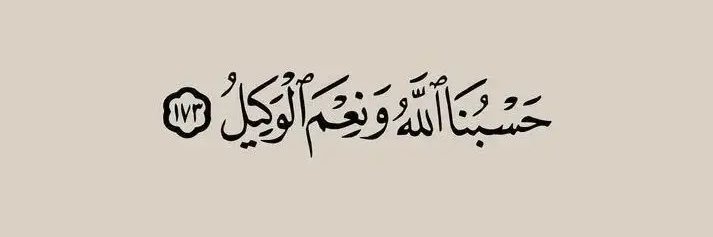 حَسْبُنَا ٱللَّهُ وَنِعْمَ ٱلْوَكِيلُ ١٧٣